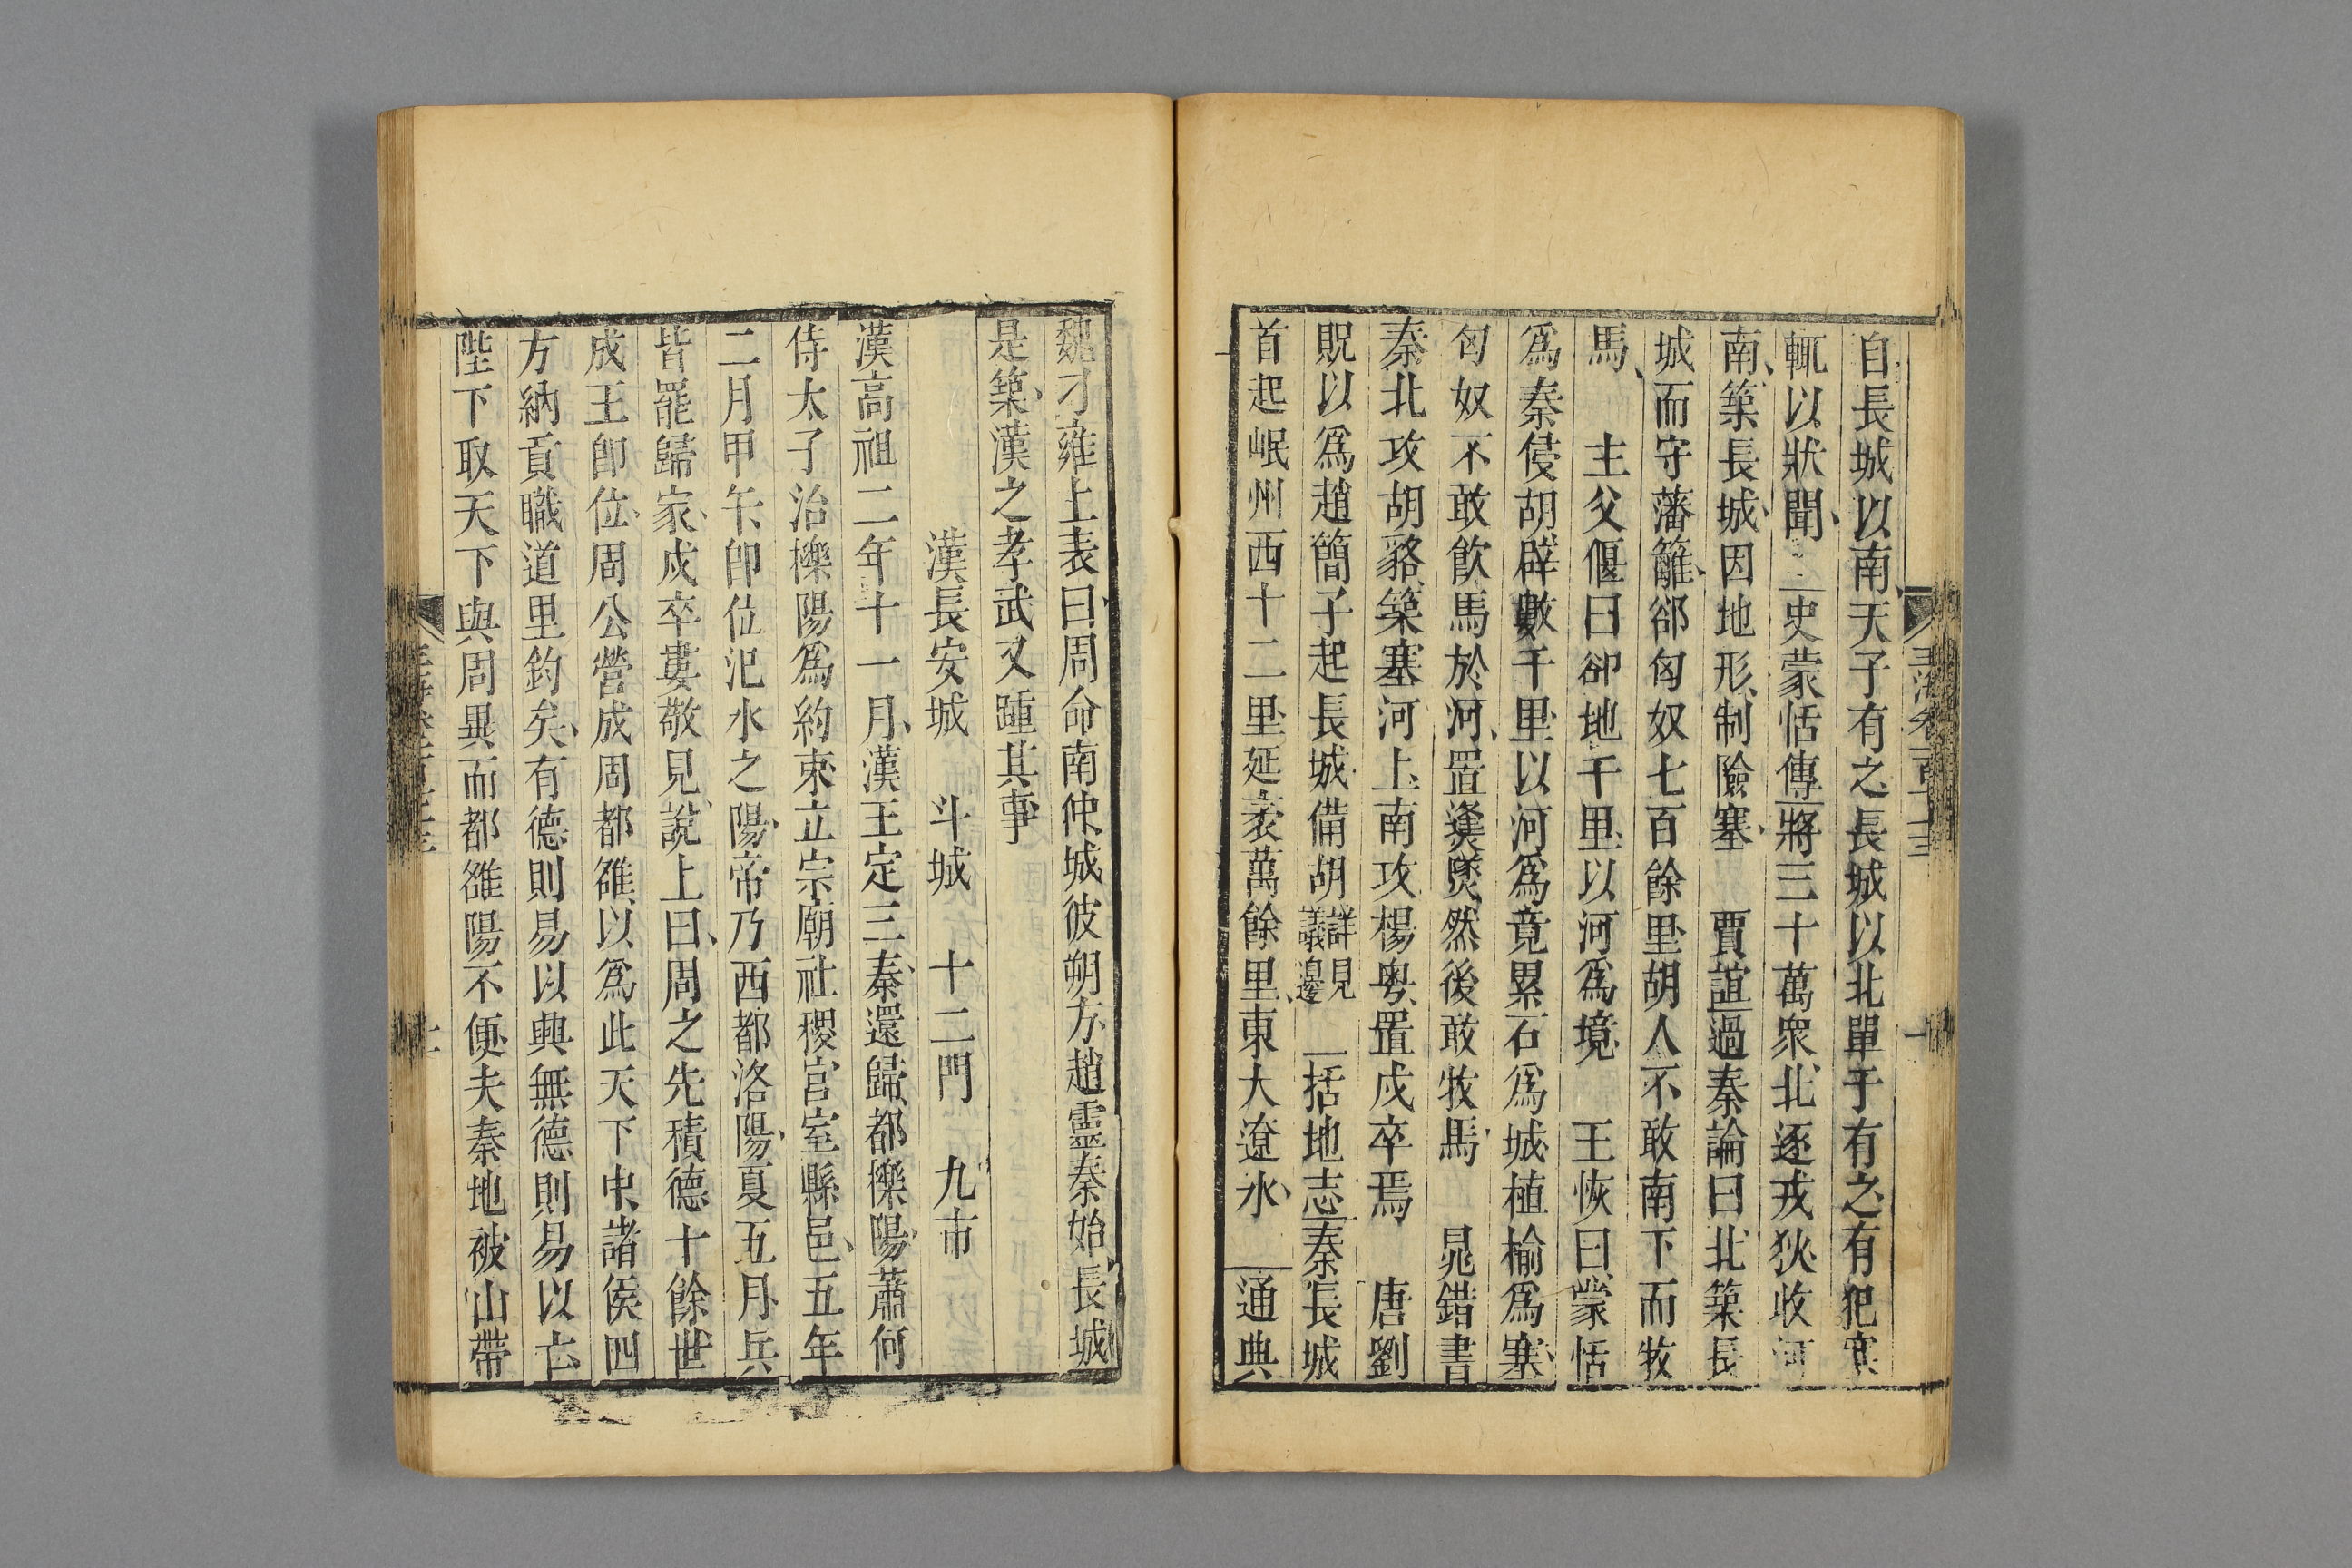 自長城以南天子有之長城以北單于有之有犯塞
輒以狀聞 史蒙恬傳將三十萬衆北逐戎狄收河
南築長城因地形制險塞 賈誼過秦論曰北築長
城而守藩籬郤匈奴七百餘里胡人不敢南下而牧
馬 主父偃曰卻地千里以河爲境 王恢曰蒙恬
爲秦侵胡辟數千里以河爲竟累石爲城植榆爲塞
匈奴不敢飲馬於河置㷭㸂然後敢牧馬 晁錯書
秦北攻胡貉築塞河上南攻楊粤置戍卒焉 唐劉
貺以爲趙簡子起長城備胡詳見議邊 括地志秦長城
首起岷州西十二里延袤萬餘里東大遼水 通典
玉海卷一百七十三
魏刁雍上表曰周命南仲城彼朔方趙靈秦始長城
是築漢之孝武又踵其事
漢長安城 斗城 十二門 九市
漢高祖二年十一月漢王定三秦還歸都櫟陽蕭何
侍太子治櫟陽爲約束立宗廟社稷宫室縣邑五年
二月甲午卽位汜水之陽帝乃西都洛陽夏五月兵
皆罷歸家戍卒婁敬見說上曰周之先積德十餘世
成王卽位周公營成周都雒以爲此天下中諸侯四
方納貢職道里鈞矣有德則易以興無德則易以亡
陛下取天下與周異而都雒陽不便夫秦地被山帶